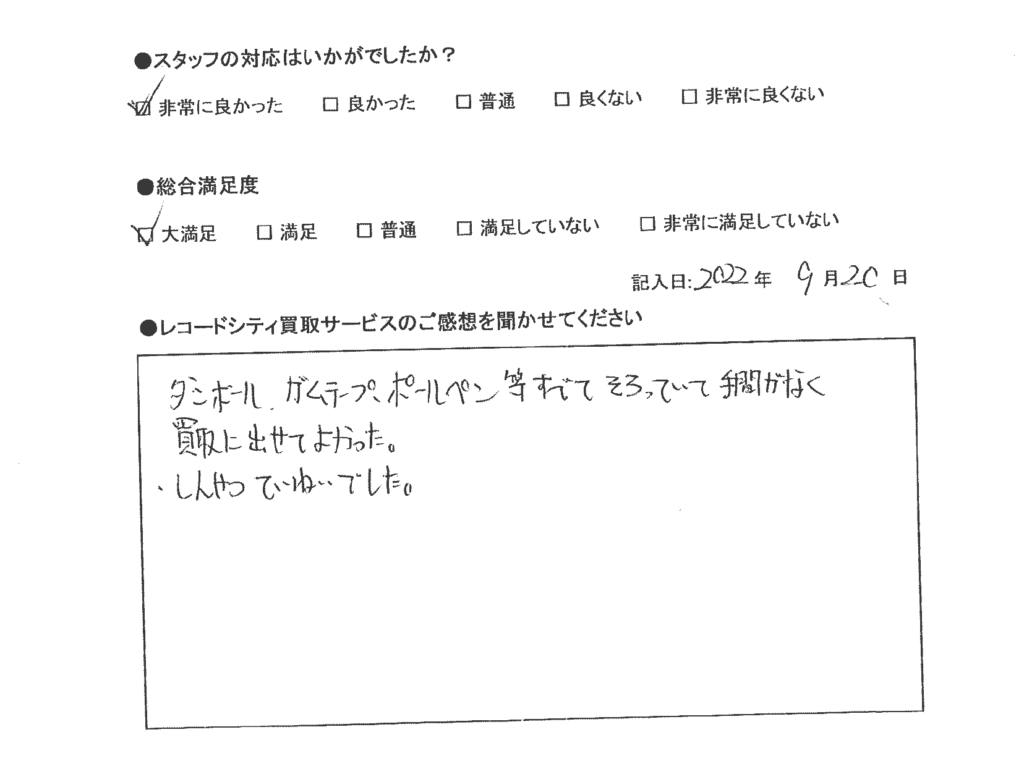 ●スタッフの対応はいかがでしたか？
☑ 非常に良かった □ 良かった □ 普通 □ 良くない □ 非常に良くない
●総合満足度
☑ 大満足 □ 満足 □ 普通 □ 満足していない □ 非常に満足していない
記入日:2022年 9月20日
●レコードシティ買取サービスのご感想を聞かせてください
ダンボール、ガムテープ、ボールペン等すべてそろっていて手間がなく
買取に出せてよかった。
・しんやつていねいでした。